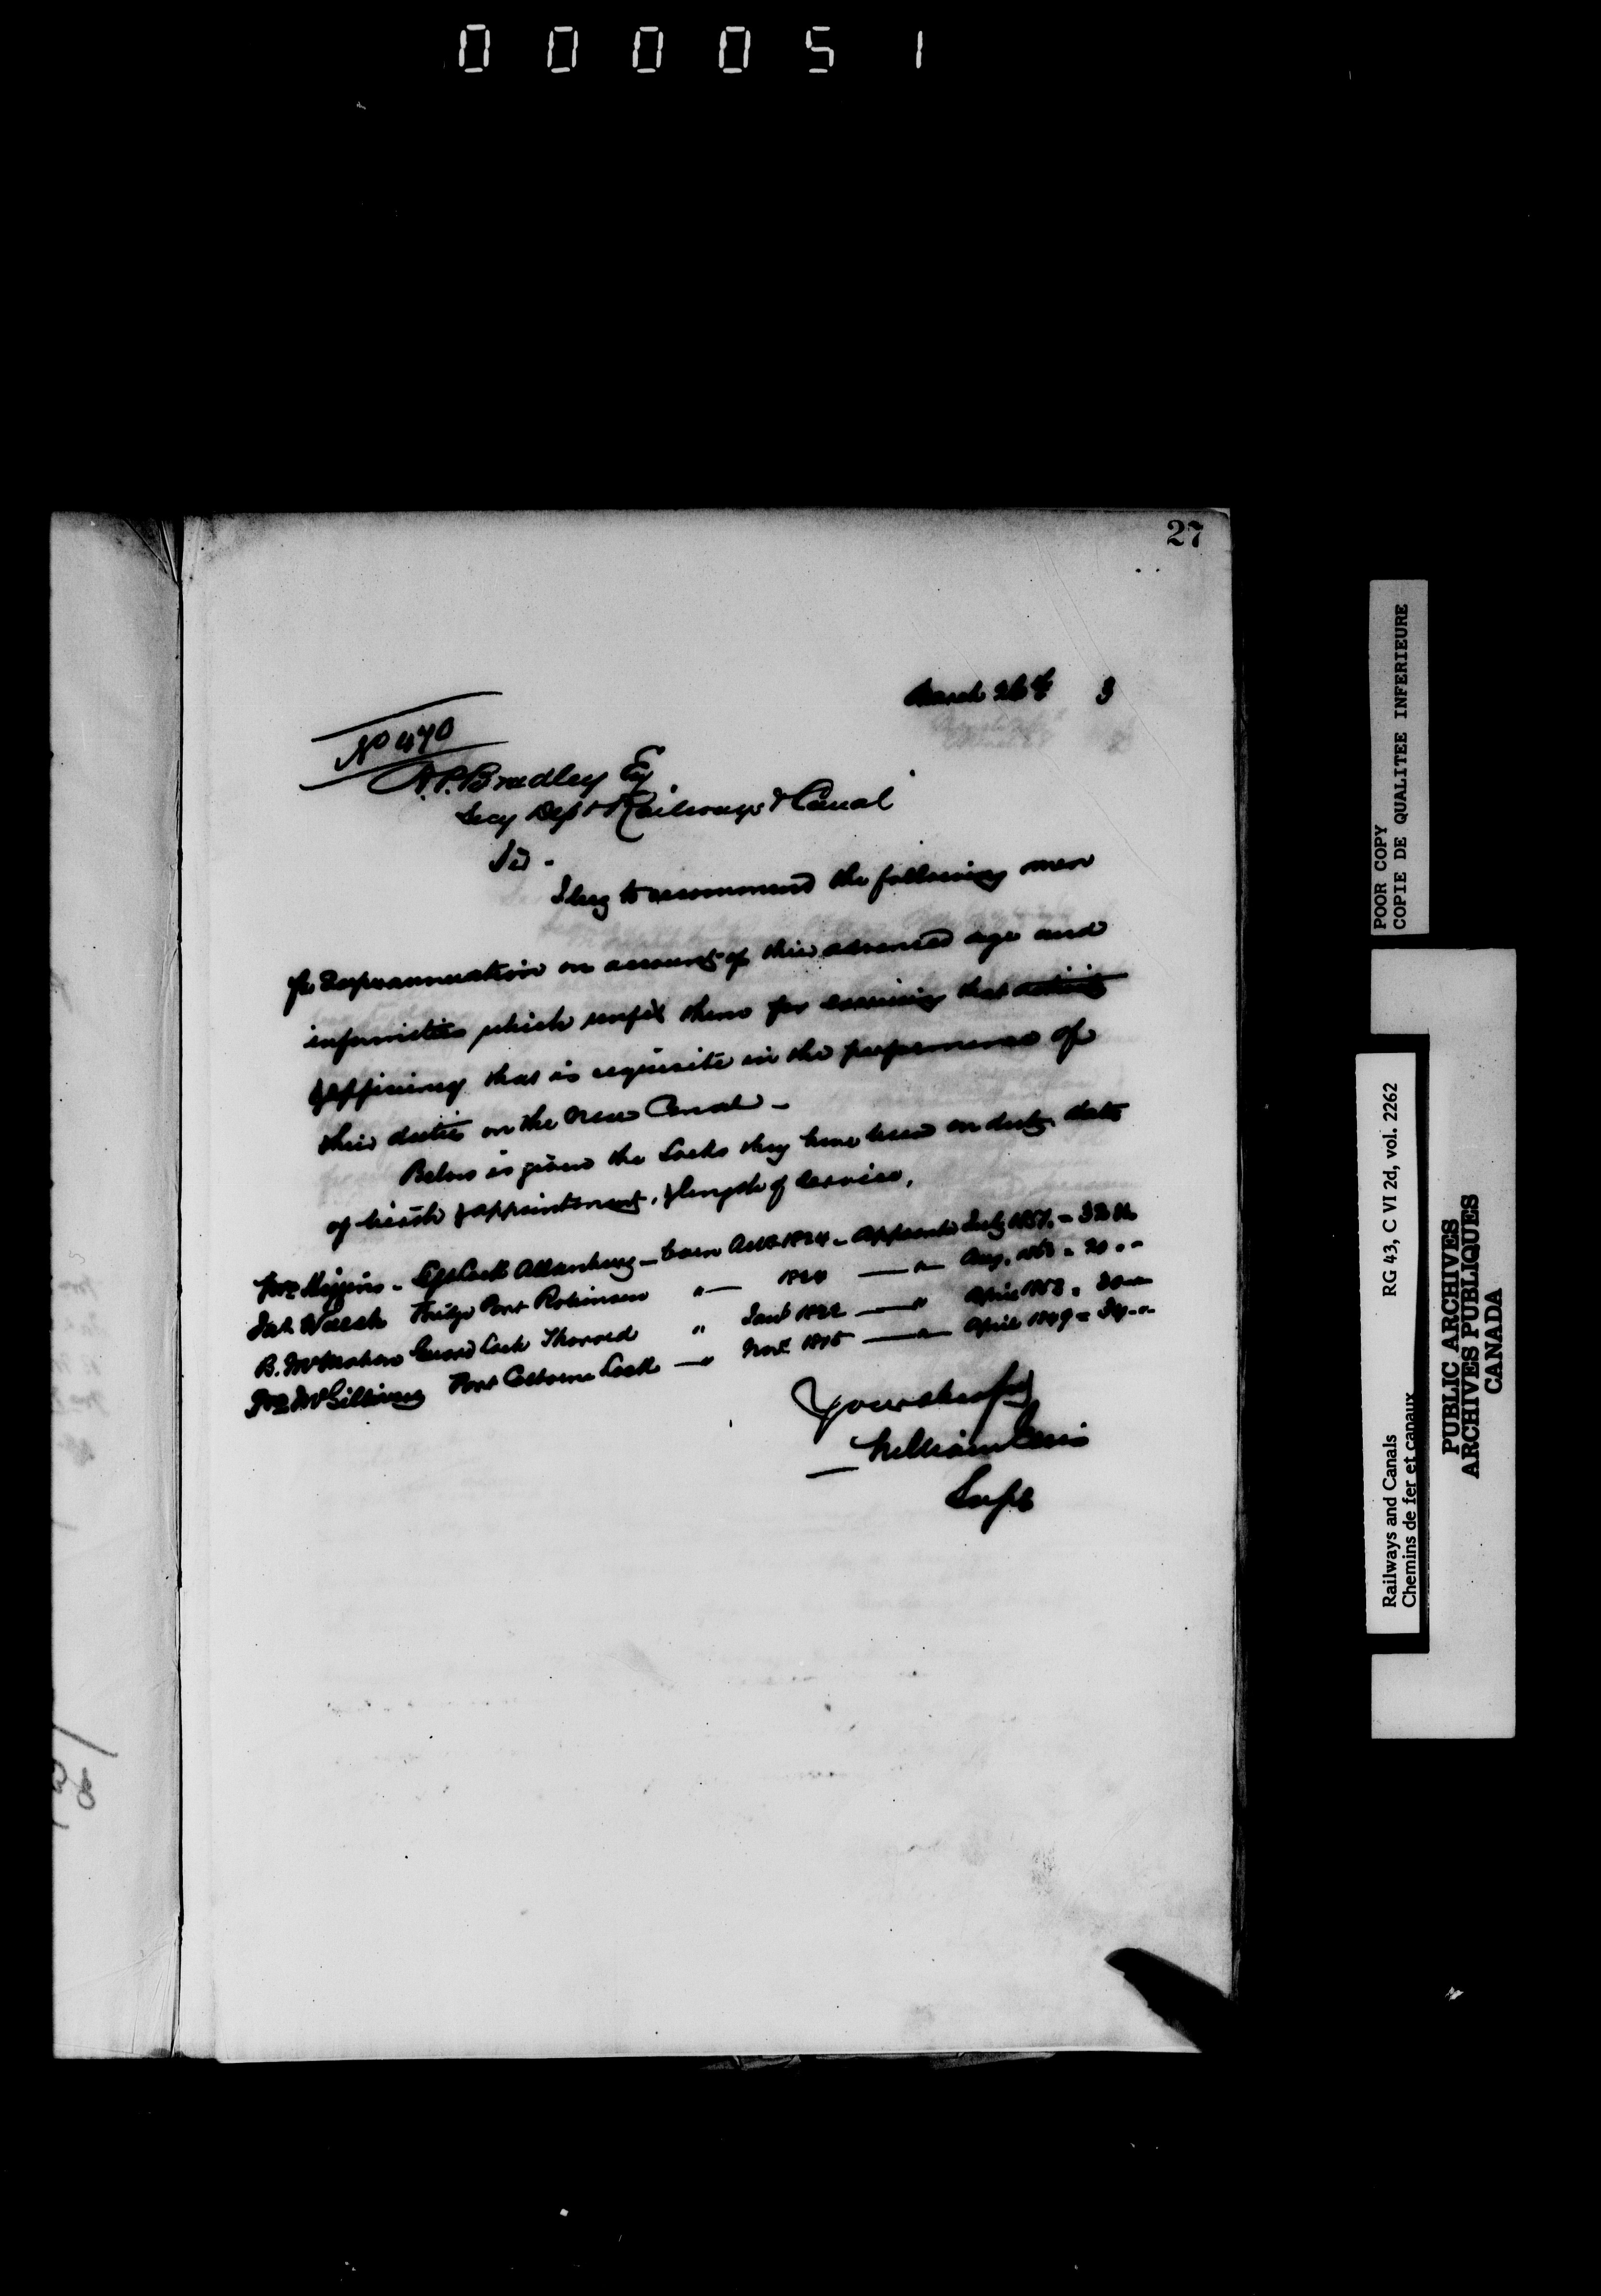 000051
27
March 26th 3
No 470
A.P. Bradley Esq
Secy Dept Railways & Canal
Sir -
I beg to recommend the following men
for Superannuation on account of their advanced age and
infirmities which unfit them for that
& efficiency that is requisite in the performance of
their duties on the New Canal -
Below is given the Locks they have been on duty, date
of birth & appointment, & length of service,
Wm Higgins - Lock Allanburg - born 1824 - Appointed July 1851 -
Jas Walsh Bridge Port Robinson " 1824 " Aug. 1863 - 20 " "
B. McMahon Guard Lock Thorold " Jany 1822 " April 1853 - 30 " "
Port Colborne Lock " Novr 1815 " April 1849 - 34 " "
Yours truly
William Ellis
Supt
POOR COPY
COPIE DE QUALITEE INFERIEURE
Railways and Canals RG 43, C VI 2d, vol. 2262
Chemins de fer et canaux
PUBLIC ARCHIVES
ARCHIVES PUBLIQUES
CANADA